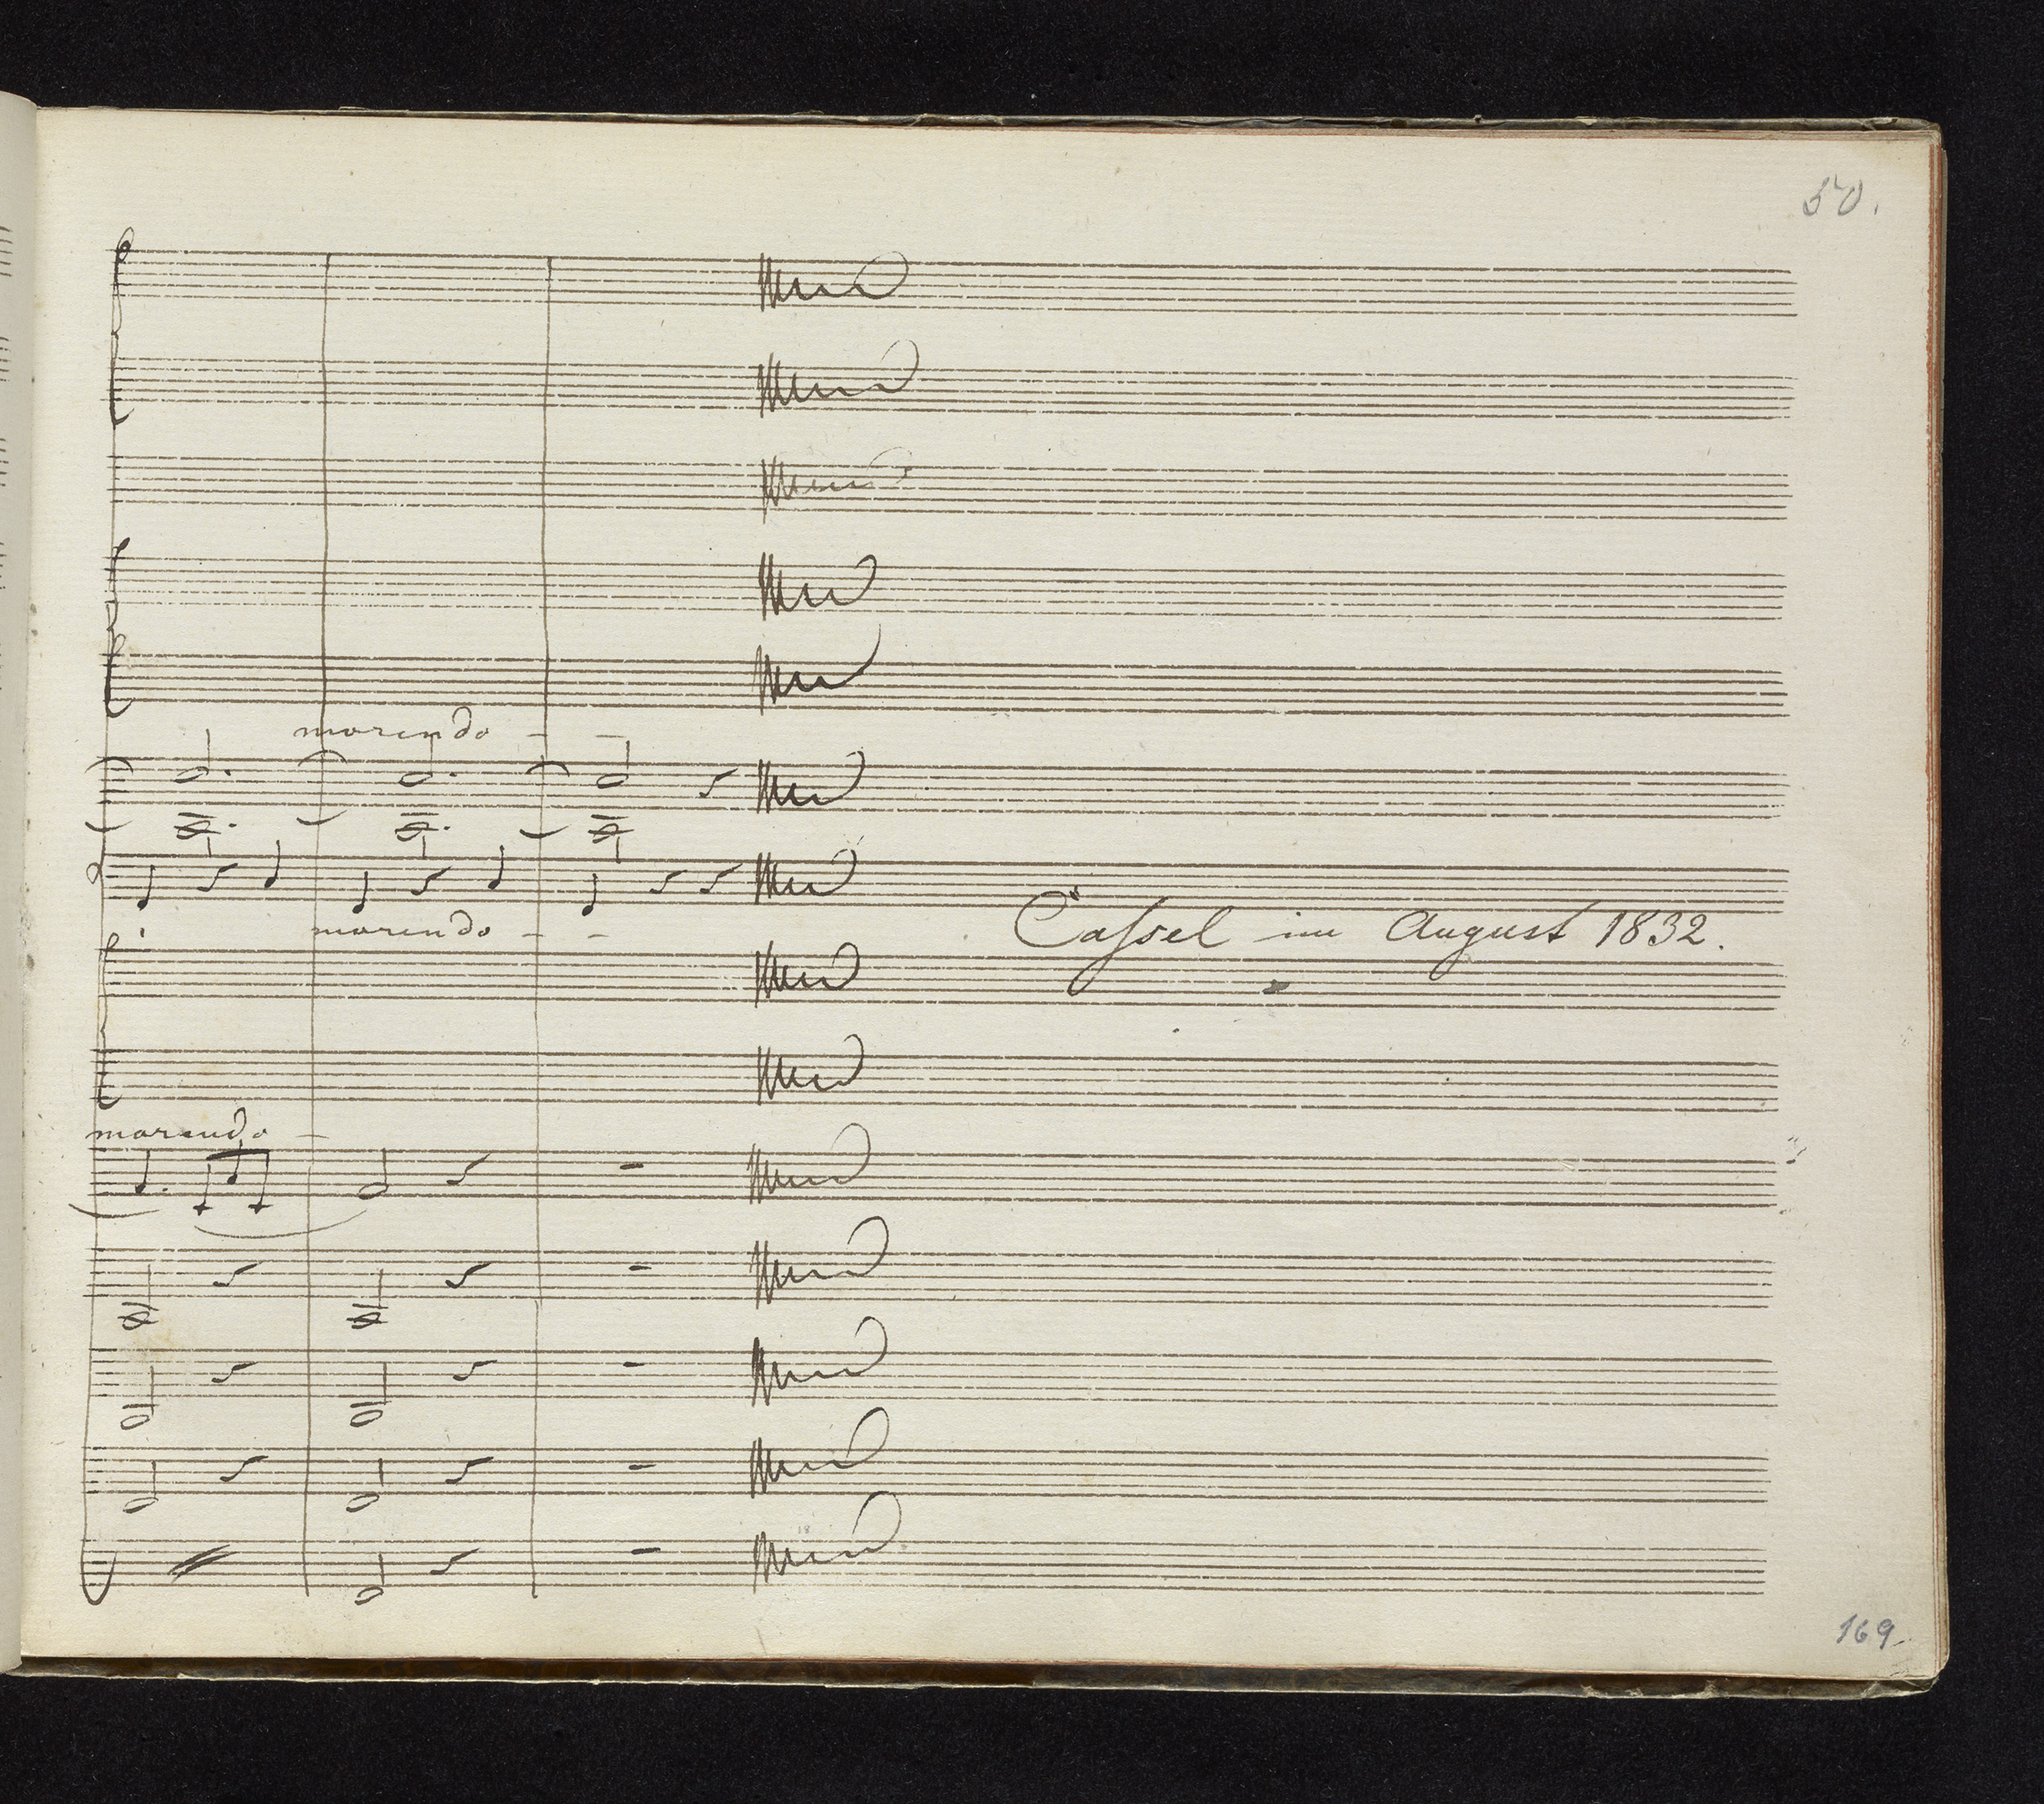 morendo - -
morendo - -
Caſsel im August 1832.
morendo -
169.